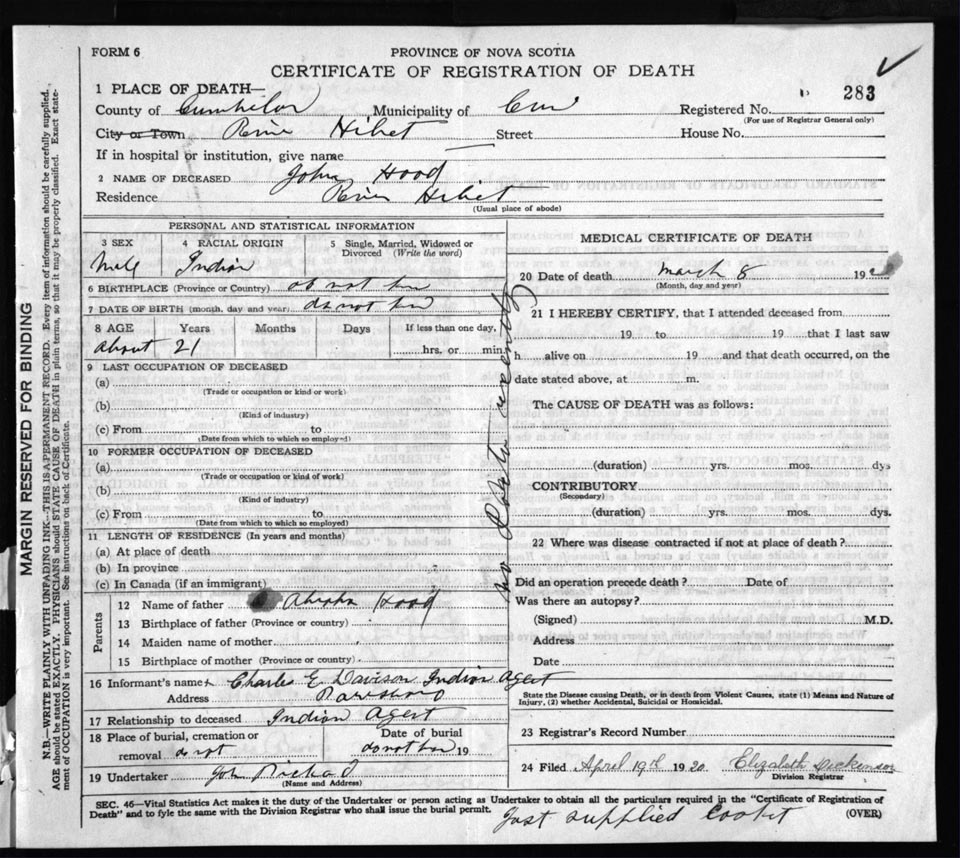 FORM 6
PROVINCE OF NOVA SCOTIA
CERTIFICATE OF REGISTRATION OF DEATH
283
1 PLACE OF DEATH—
County of Municipality of Registered No.
(For use of Registrar General only)
City or Town River Hibet Street House No.
If in hospital or institution, give name
2 NAME OF DECEASED John Hood
Residence River Hibet
(Usual place of abode)
PERSONAL AND STATISTICAL INFORMATION
3 SEX 4 RACIAL ORIGIN 5 Single, Married, Widowed or Divorced (Write the word)
Male Indian
6 BIRTHPLACE (Province or Country) do not
7 DATE OF BIRTH (month, day and year) do not
8 AGE Years Months Days If less than one day,
about 21 hrs. or min
9 LAST OCCUPATION OF DECEASED
(a)
(Trade or occupation or kind of work)
(b)
(Kind of industry)
(c) From to
(Date from which to which so employed)
10 FORMER OCCUPATION OF DECEASED
(a)
(Trade or occupation or kind of work)
(b)
(Kind of industry)
(c) From to
(Date from which to which so employed)
11 LENGTH OF RESIDENCE (In years and months)
(a) At place of death
(b) In province
(c) In Canada (if an immigrant)
Parents
12 Name of father Hood
13 Birthplace of father (Province or country)
14 Maiden name of mother
15 Birthplace of mother (Province or country)
16 Informant's name Charles E Davison Indian Agent
Address Parrsboro
17 Relationship to deceased Indian Agent
18 Place of burial, cremation or removal do not
Date of burial do not 19
19 Undertaker Joh Richard
(Name and Address)
MEDICAL CERTIFICATE OF DEATH
20 Date of death March 8 192
(Month, day and year)
21 I HEREBY CERTIFY, that I attended deceased from
19 to 19 that I last saw
h alive on 19 and that death occurred, on the
date stated above, at m.
The CAUSE OF DEATH was as follows:
(duration) yrs. mos. dys
CONTRIBUTORY
(Secondary)
(duration) yrs. mos. dys.
22 Where was disease contracted if not at place of death?
Did an operation precede death? Date of
Was there an autopsy?
(Signed) M.D.
Address
Date
State the Disease causing Death, or in death from Violent Causes, state (1) Means and Nature of
Injury, (2) whether Accidental, Suicidal or Homicidal.
23 Registrar's Record Number
24 Filed April 19th 1920 Elizabeth Dickinson
Division Registrar
SEC. 46—Vital Statistics Act makes it the duty of the Undertaker or person acting as Undertaker to obtain all the particulars required in the "Certificate of Registration of
Death" and to fyle the same with the Division Registrar who shall issue the burial permit.
(OVER)
Just supplied
MARGIN RESERVED FOR BINDING
N.B.—WRITE PLAINLY WITH UNFADING INK—THIS IS A PERMANENT RECORD. Every item of information should be carefully supplied.
AGE should be stated EXACTLY. PHYSICIANS should STATE CAUSE OF DEATH in plain terms, so that it may be properly classified. Exact state-
ment of OCCUPATION is very important. See instructions on back of Certificate.